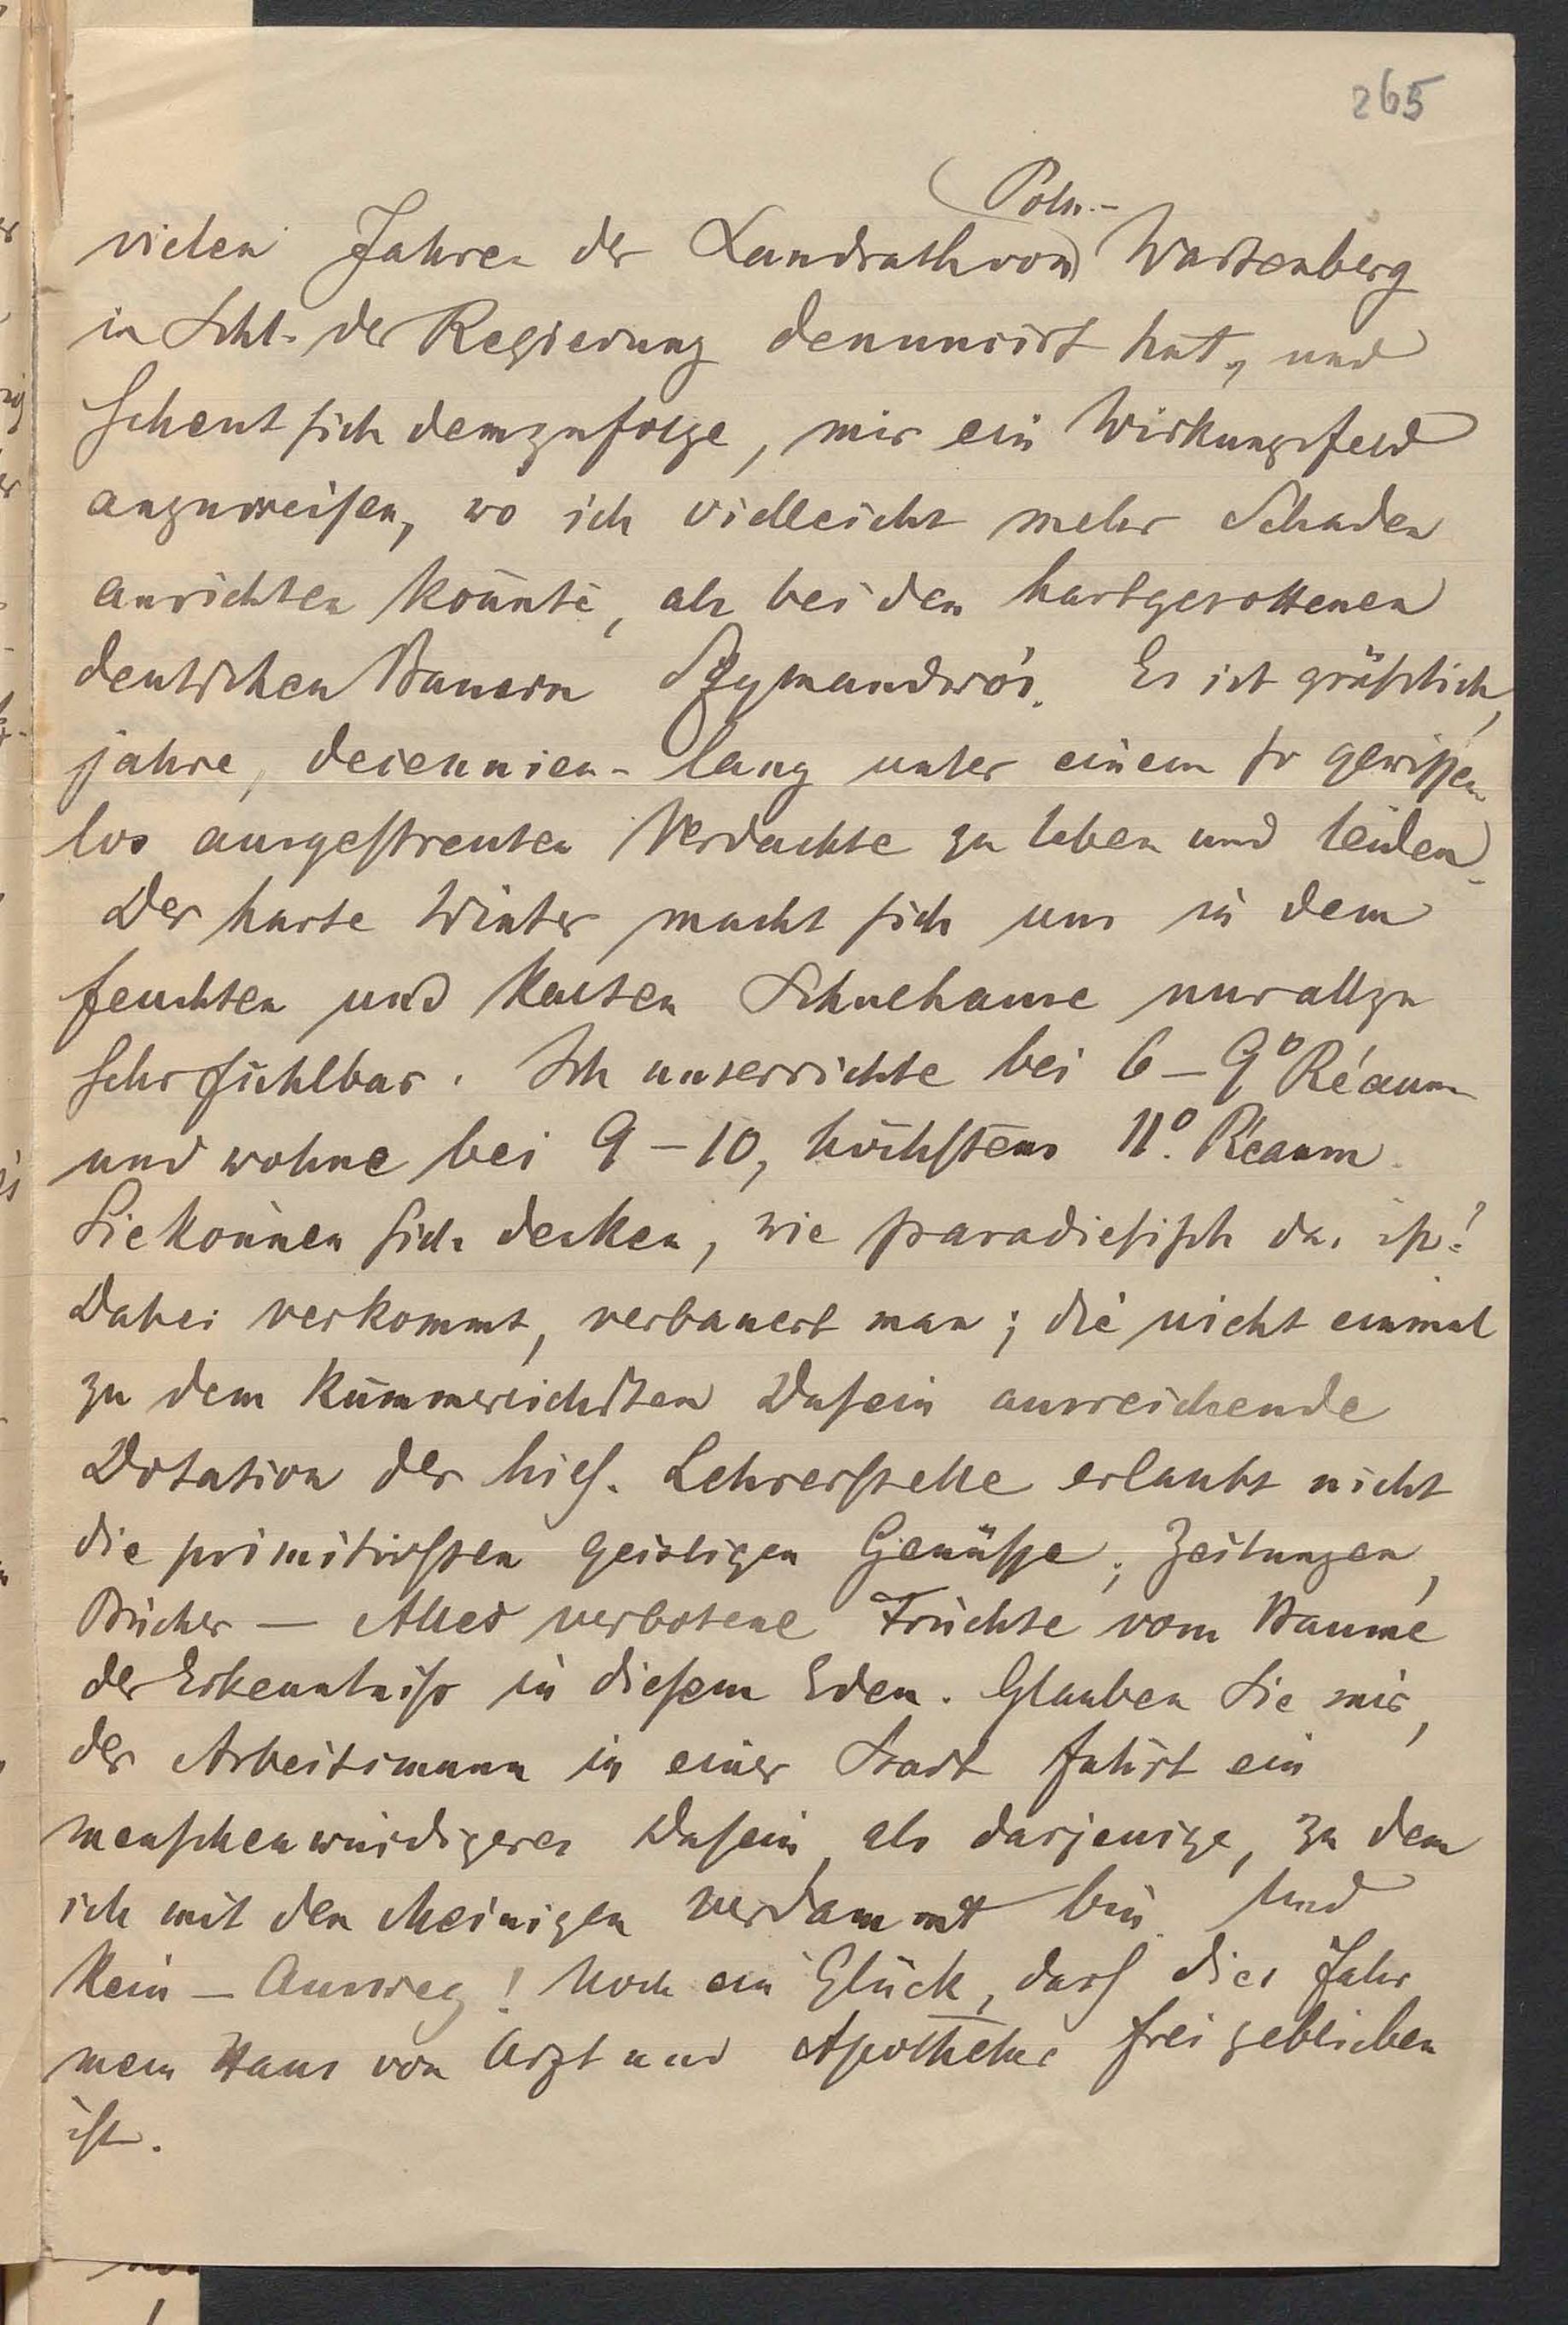 265
Poln.-
vielen Jahren der Landrath von Wartenberg
in Schl. der Regierung denuncirt hat, und
scheut sich demzufolge, mir ein Wirkungsfeld
anzuweisen, wo ich vielleicht mehr Schaden
anrichten könnte, als bei den hartgesottenen
deutschen Bauern Szymandwós. Es ist gräßlich,
jahre, decennien-lang unter einem so gewissen
los ausgestreuten Verdachte zu leben und leiden.
Der harte Winter macht sich uns in dem
feuchten und kalten Schulhause nur allzu
sehr fühlbar. Ich unterrichte bei 6-9° Réaum
und wohne bei 9-10, höchstens 11° Réaum.
Sie können sich denken, wie paradiesisch das ist!
Dabei verkommt, verbauert man; die nicht einmal
zu dem kümmerlichsten Dasein ausreichende
Dotation der hies. Lehrerstelle erlaubt nicht
die primitivsten geistigen Genüsse; Zeitungen,
Bücher — Alles verbotene Früchte vom Baume
der Erkenntniß in diesem Eden. Glauben Sie mir,
der Arbeitsmann in einer Stadt führt ein
menschenwürdigeres Dasein, als dasjenige, zu dem
ich mit den Meinigen verdammt bin. Und
kein — Ausweg! Noch ein Glück, dass dies Jahr
mein Haus von Arzt und Apotheke frei geblieben
ist.